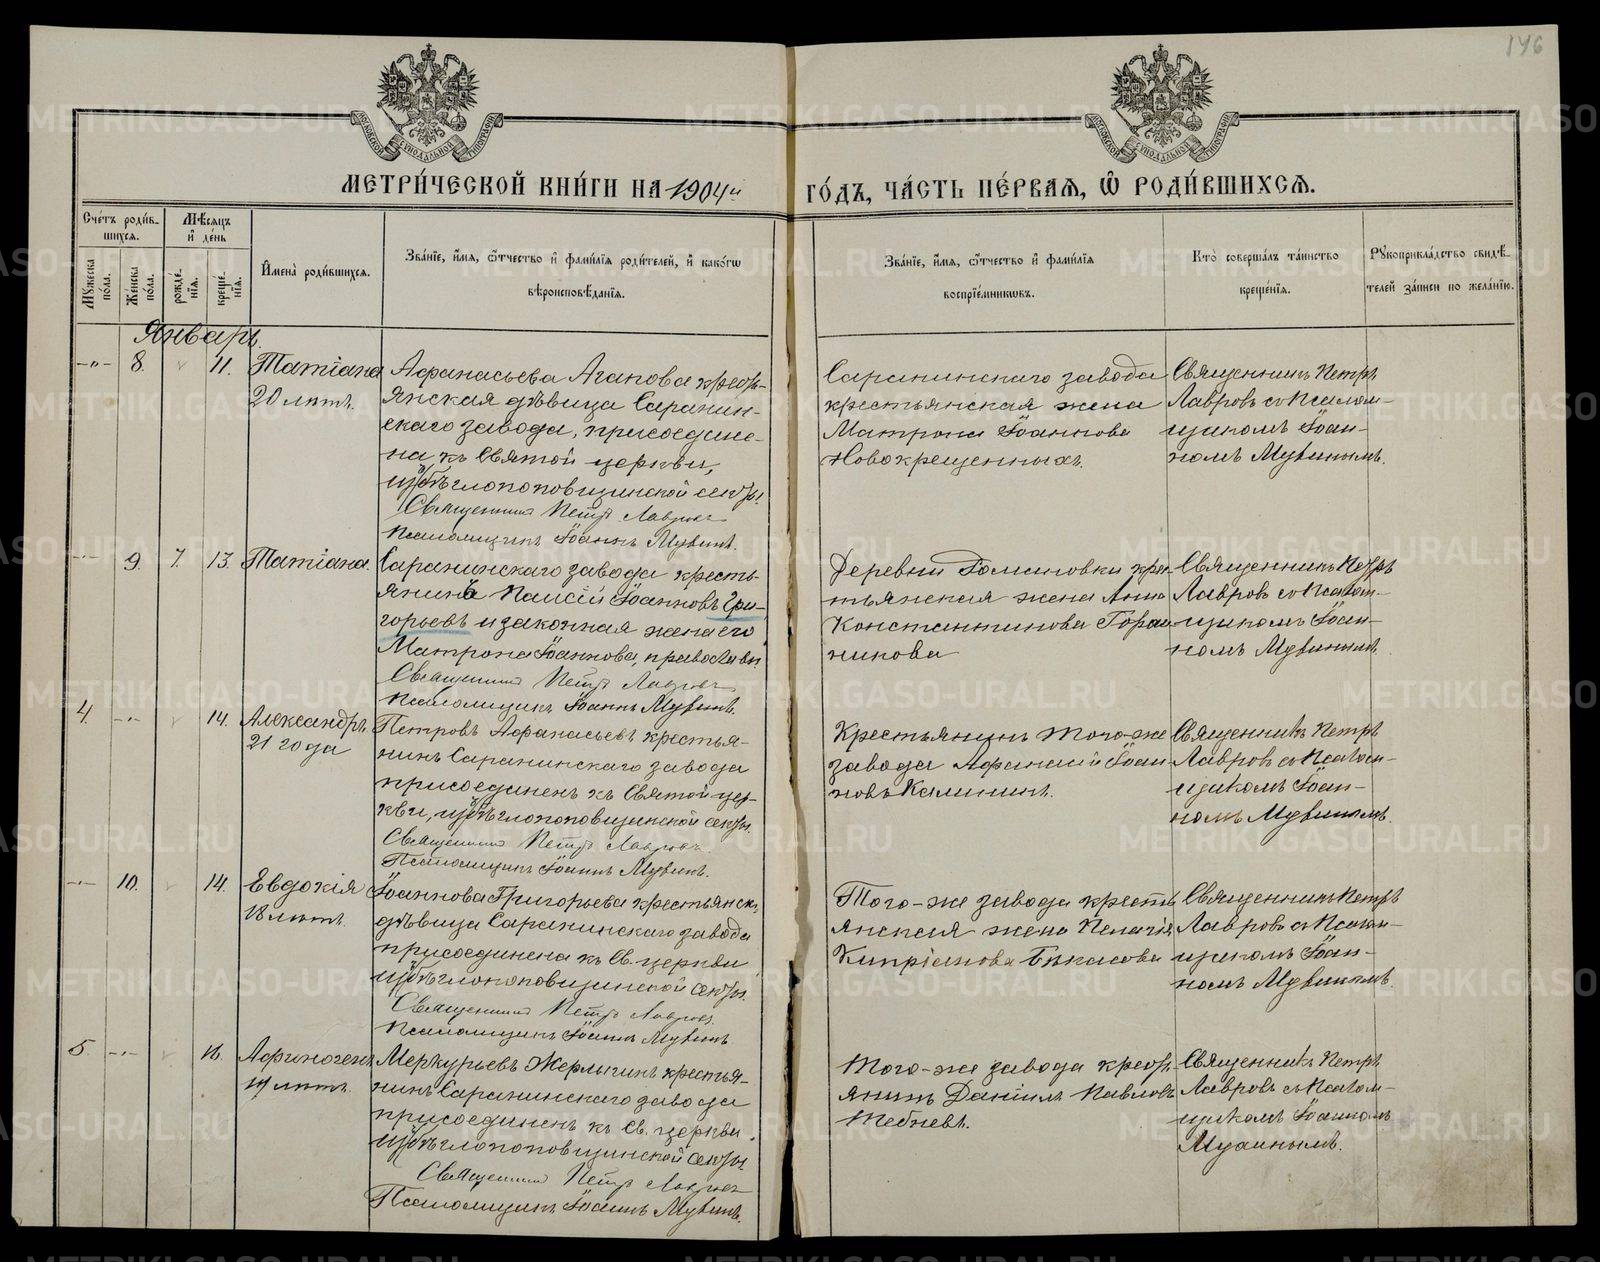 146
МЕТРИ́ЧЕСКОЙ КНИ́ГИ НА 1904й ГО́ДЪ, ЧА́СТЬ ПЕ́РВАѦ, Ѽ РОДИ́ВШИХСѦ.
Сче́тъ роди́в-
шихся.
Мѣ́сяцъ
и҆ де́нь
Му́жеска по́ла.
Же́нска по́ла.
рожде́нїя.
креще́нїя.
И҆мена̀ роди́вшихся.
Зва́нїе, и҆́мя, ѻ҆́тчество и҆ фами́лїя роди́телей, и҆ како́гѡ
вѣроисповѣ́данїя.
Зва́нїе, и҆́мя, ѻ҆́тчество и҆ фами́лїя
воспрїе́мникѡвъ.
Кто̀ соверша́лъ та́инство
креще́нїя.
Рꙋкоприкла́дство свидѣ́-
телей за́писи по жела́нїю.
Январь.
-"- 8. 11. Татіана
20 лѣтъ.
Афанасьева Агапова кресть-
янская дѣвица Саранин-
скаго завода, присоедине-
на къ Святой церкви,
изъ бѣглопоповщинской секты.
Священникъ Петръ Лавровъ
Псаломщикъ Іоаннъ Мувинъ.
Саранинскаго завода
крестьянская жена
Матрона Іоаннова
Новокрещенныхъ.
Священникъ Петръ
Лавровъ съ Псалом-
щикомъ Іоан-
номъ Мувинымъ.
-"- 9. 7. 13. Татіана.
Саранинскаго завода кресть-
янинъ Паисій Іоанновъ Гри-
горьевъ и законная жена его
Матрона Іоаннова, православн.
Священникъ Петръ Лавровъ
Псаломщикъ Іоаннъ Мувинъ.
Деревни Романовки крес-
тьянская жена Анна
Константинова Горш-
никова
Священникъ Петръ
Лавровъ съ Псалом-
щикомъ Іоан-
номъ Мувинымъ.
4. -"- 14. Александръ
21 года
Петровъ Афанасьевъ крестья-
нинъ Саранинскаго завода
присоединенъ къ Святой цер-
кви, изъ бѣглопоповщинской секты.
Священникъ Петръ Лавровъ.
Псаломщикъ Іоаннъ Мувинъ.
Крестьянинъ того-же
завода Афанасій Іоан-
новъ Калининъ.
Священникъ Петръ
Лавровъ съ Псалом-
щикомъ Іоан-
номъ Мувинымъ.
-"- 10. 14. Евдокія
18 лѣтъ.
Іоаннова Григорьева крестьянск.
дѣвица Саранинскаго завода
присоединена къ Св. церкви
изъ бѣглопоповщинской секты.
Священникъ Петръ Лавровъ.
Псаломщикъ Іоаннъ Мувинъ
Того-же завода кресть
янская жена Пелагія
Кипріанова Бѣкасова
Священникъ Петръ
Лавровъ съ Псалом-
щикомъ Іоан-
номъ Мувинымъ
5. -"- 16. Афиногенъ
19 лѣтъ.
Меркурьевъ Жерлыгинъ крестья-
нинъ Саранинскаго завода
присоединенъ къ Св. церкви
изъ бѣглопоповщинской секты.
Священникъ Петръ Лавровъ
Псаломщикъ Іоаннъ Мувинъ.
Того-же завода кресть-
янинъ Даніилъ Павловъ
Тебневъ.
Священникъ Петръ
Лавровъ съ Псалом-
щикомъ Іоанномъ
Мувинымъ.
METRIKI.GASO-URAL.RU